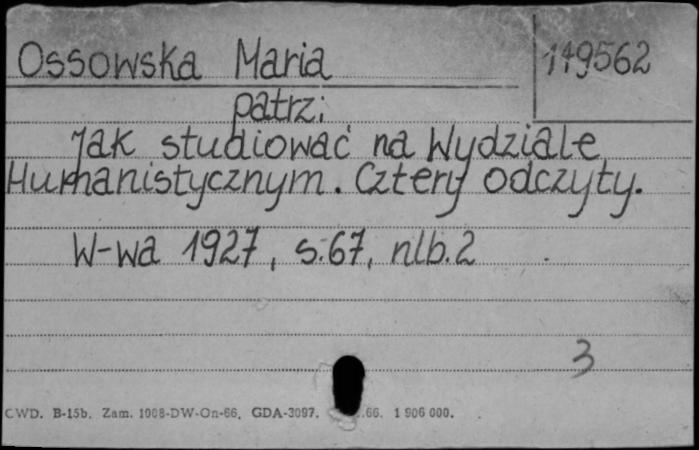 Ossowska Maria 149562
patrz:
Jak studiować na Wydziale
Humanistycznym. Cztery odczyty.
W-wa 1927, s.67, nlb.2
3
CWD. B-15b. Zam. 1008-DW-On-66. GDA-3097. .66. 1 906 000.